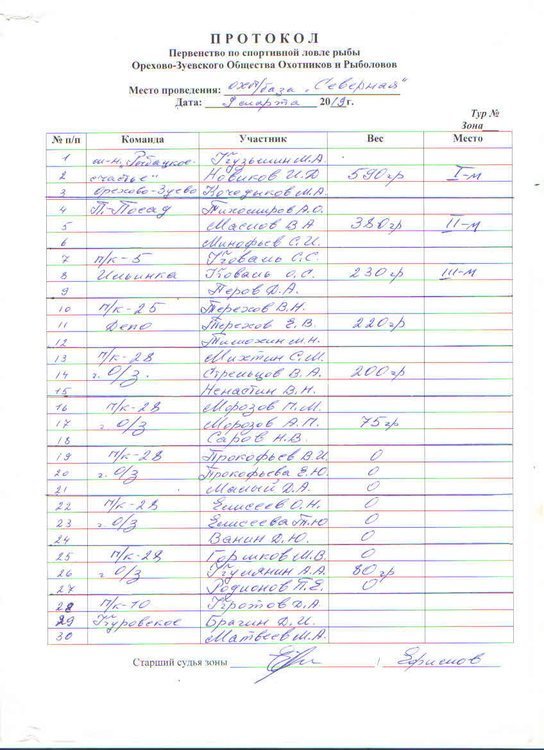 ПРОТОКОЛ
Первенство по спортивной ловле рыбы
Орехово-Зуевского Общества Охотников и Рыболовов
Место проведения: охот/база "Северная"
Дата: 9 марта 2019г.
Тур №
Зона
№ п/п Команда Участник Вес Место
1 м-н "Рыбацкое Кузьмин М.А.
2 счастье" Новиков И.Ф 590гр I-м
3 Орехово-Зуево Кочедыков М.А.
4 П.-Посад Тихомиров А.О.
5 Маслов В.А 380гр II-м
6 Минофьев С.И.
7 п/к-5 Коваль С.С.
8 Ильинка Коваль О.С. 230гр III-м
9 Перов Д.А.
10 п/к-25 Терехов В.Н.
11 Депо Терехов Е.В. 220гр
12 Тимохин М.Н.
13 п/к-28 Михтин С.М.
14 г. О/З. Стрельцов В.А. 200гр
15 Ненастин В.Н.
16 п/к-28 Морозов П.М.
17 г. О/З Морозов А.П. 75гр
18 Саров Н.В.
19 п/к-28 Прокофьев В.И 0
20 г. О/З Прокофьева Е.Ю. 0
21 Малый Д.А. 0
22 п/к-28 Елисеев О.Н. 0
23 г. О/З Елисеева Т.Ю 0
24 Ванин Д.Ю. 0
25 п/к-28 Горшков М.В. 0
26 г. О/З А.А. 80гр
27 Родионов П.Е. 0
28 п/к-10 Кротов Д.А
29 Куровское Брагин Д.И.
30 Матвеев М.А.
Старший судья зоны / Ефимов